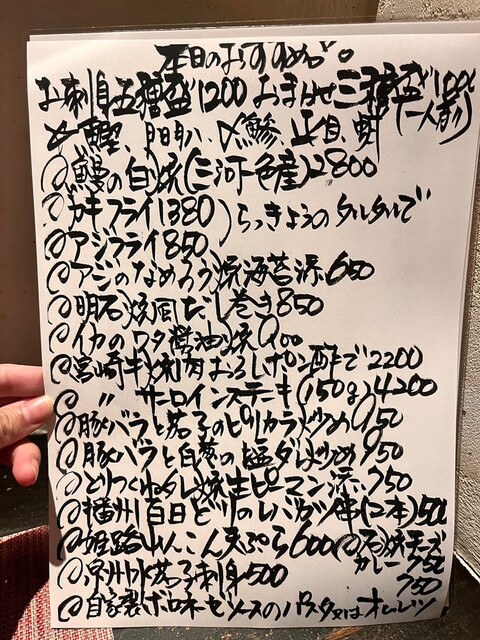 本日のおすすめで。
お刺身五種盛1200 おまかせ三種盛1100
(一人前)
〆鯖、
◎鰻の白焼(三河一色産)2800
◎カキフライ1380)らっきょうのタルタルで
◎アジフライ850
◎アジのなめろう焼海苔添650
◎明石焼風だし巻き850
◎イカのワタ醤油焼900
◎宮崎牛焼肉おろしポン酢で2200
◎ 〃 サーロインステーキ(150g)4200
◎豚バラと茄子のピリカラ炒め950
◎豚バラと白葱の塩ダレ炒め950
◎とりつくねタレ焼生ピーマン添750
◎播州百日どりのレバカツ串(2本)500
◎姫路れんこん天ぷら600 ◎石焼チーズ
カレー950
◎泉州水茄子刺身500
750
◎自家製ボロネーゼソースのパスタ又はオムレツ